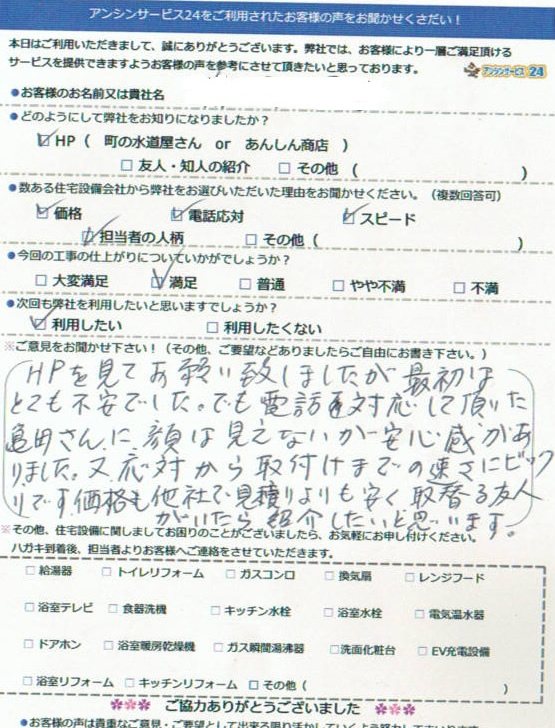 アンシンサービス24をご利用されたお客様の声をお聞かせください！
本日はご利用いただきまして、誠にありがとうございます。弊社では、お客様により一層ご満足頂ける
サービスを提供できますようお客様の声を参考にさせて頂きたいと思っております。
アンシンサービス24
●お客様のお名前又は貴社名
●どのようにして弊社をお知りになりましたか？
☑HP（ 町の水道屋さん or あんしん商店 ）
□友人・知人の紹介 □その他（ ）
●数ある住宅設備会社から弊社をお選びいただいた理由をお聞かせください。（複数回答可）
☑価格 ☑電話応対 ☑スピード
☑担当者の人柄 □その他（ ）
●今回の工事の仕上がりについていかがでしょうか？
□大変満足 ☑満足 □普通 □やや不満 □不満
●次回も弊社を利用したいと思いますでしょうか？
☑利用したい □利用したくない
※ご意見をお聞かせ下さい！（その他、ご要望などありましたらご自由にお書き下さい。）
HPを見てお願い致しましたが最初は
とても不安でした。でも電話を対応して頂いた
亀田さんに顔は見えないが安心感があ
りました。又応対から取付けまでの速さにビック
リです。価格も他社で見積りよりも安く取替る友人
がいたら紹介したいと思います。
※その他、住宅設備に関しましてお困りのことがございましたら、お気軽にお申し付けください。
ハガキ到着後、担当者よりお客様へご連絡をさせていただきます。
□給湯器 □トイレリフォーム □ガスコンロ □換気扇 □レンジフード
□浴室テレビ □食器洗機 □キッチン水栓 □浴室水栓 □電気温水器
□ドアホン □浴室暖房乾燥機 □ガス瞬間湯沸器 □洗面化粧台 □EV充電設備
□浴室リフォーム □キッチンリフォーム □その他（ ）
ご協力ありがとうございました
●お客様の声は貴重なご意見・ご要望として出来る限り活かしていくよう努力しております